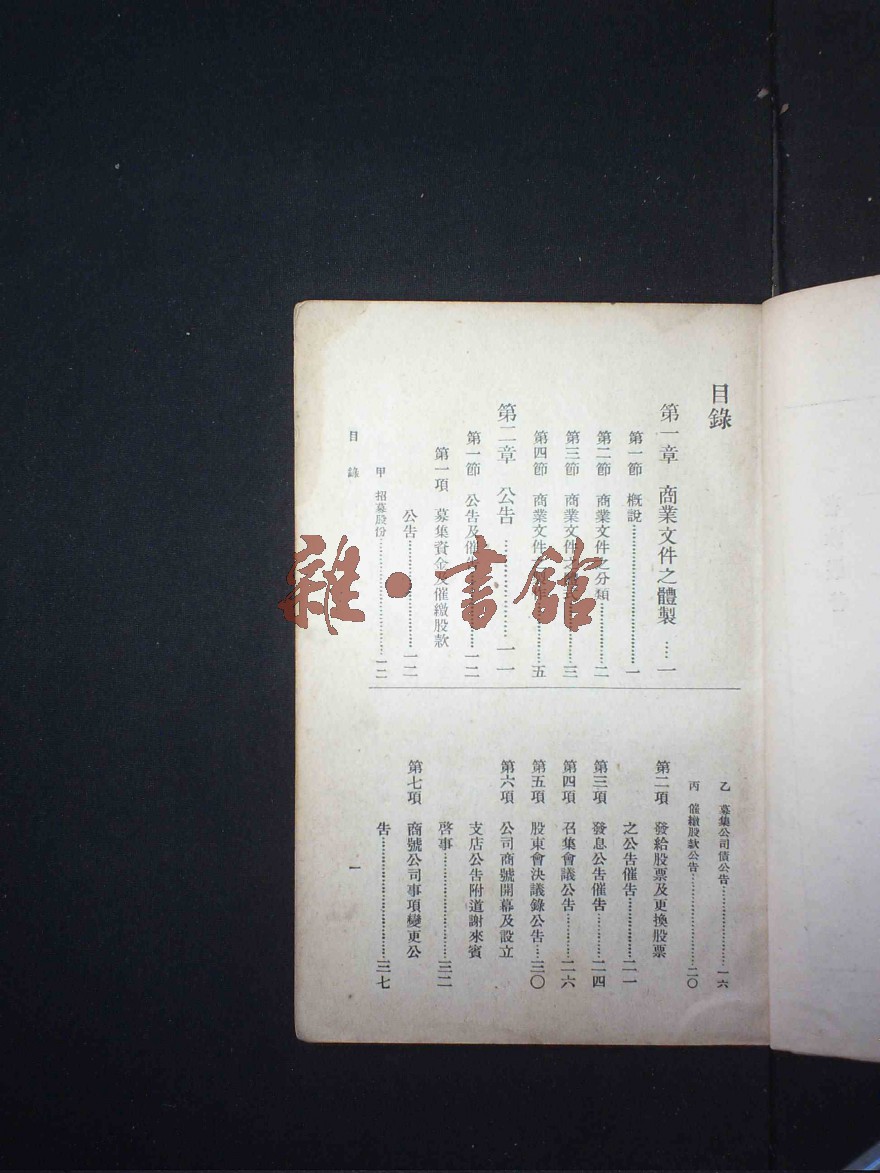 目錄
第一章 商業文件之體製……一
第一節 概說……一
第二節 商業文件之分類……二
第三節 商業文件之……三
第四節 商業文件……五
第二章 公告……一一
第一節 公告及催告……一二
第一項 募集資金及催繳股款
公告……一二
甲 招募股份……一二
乙 募集公司債公告……一六
丙 催繳股款公告……二〇
第二項 發給股票及更換股票
之公告催告……二一
第三項 發息公告催告……二四
第四項 召集會議公告……二六
第五項 股東會決議錄公告……三〇
第六項 公司商號開幕及設立
支店公告附道謝來賓
啓事……三二
第七項 商號公司事項變更公
告……三七
目錄
一
雜·書館